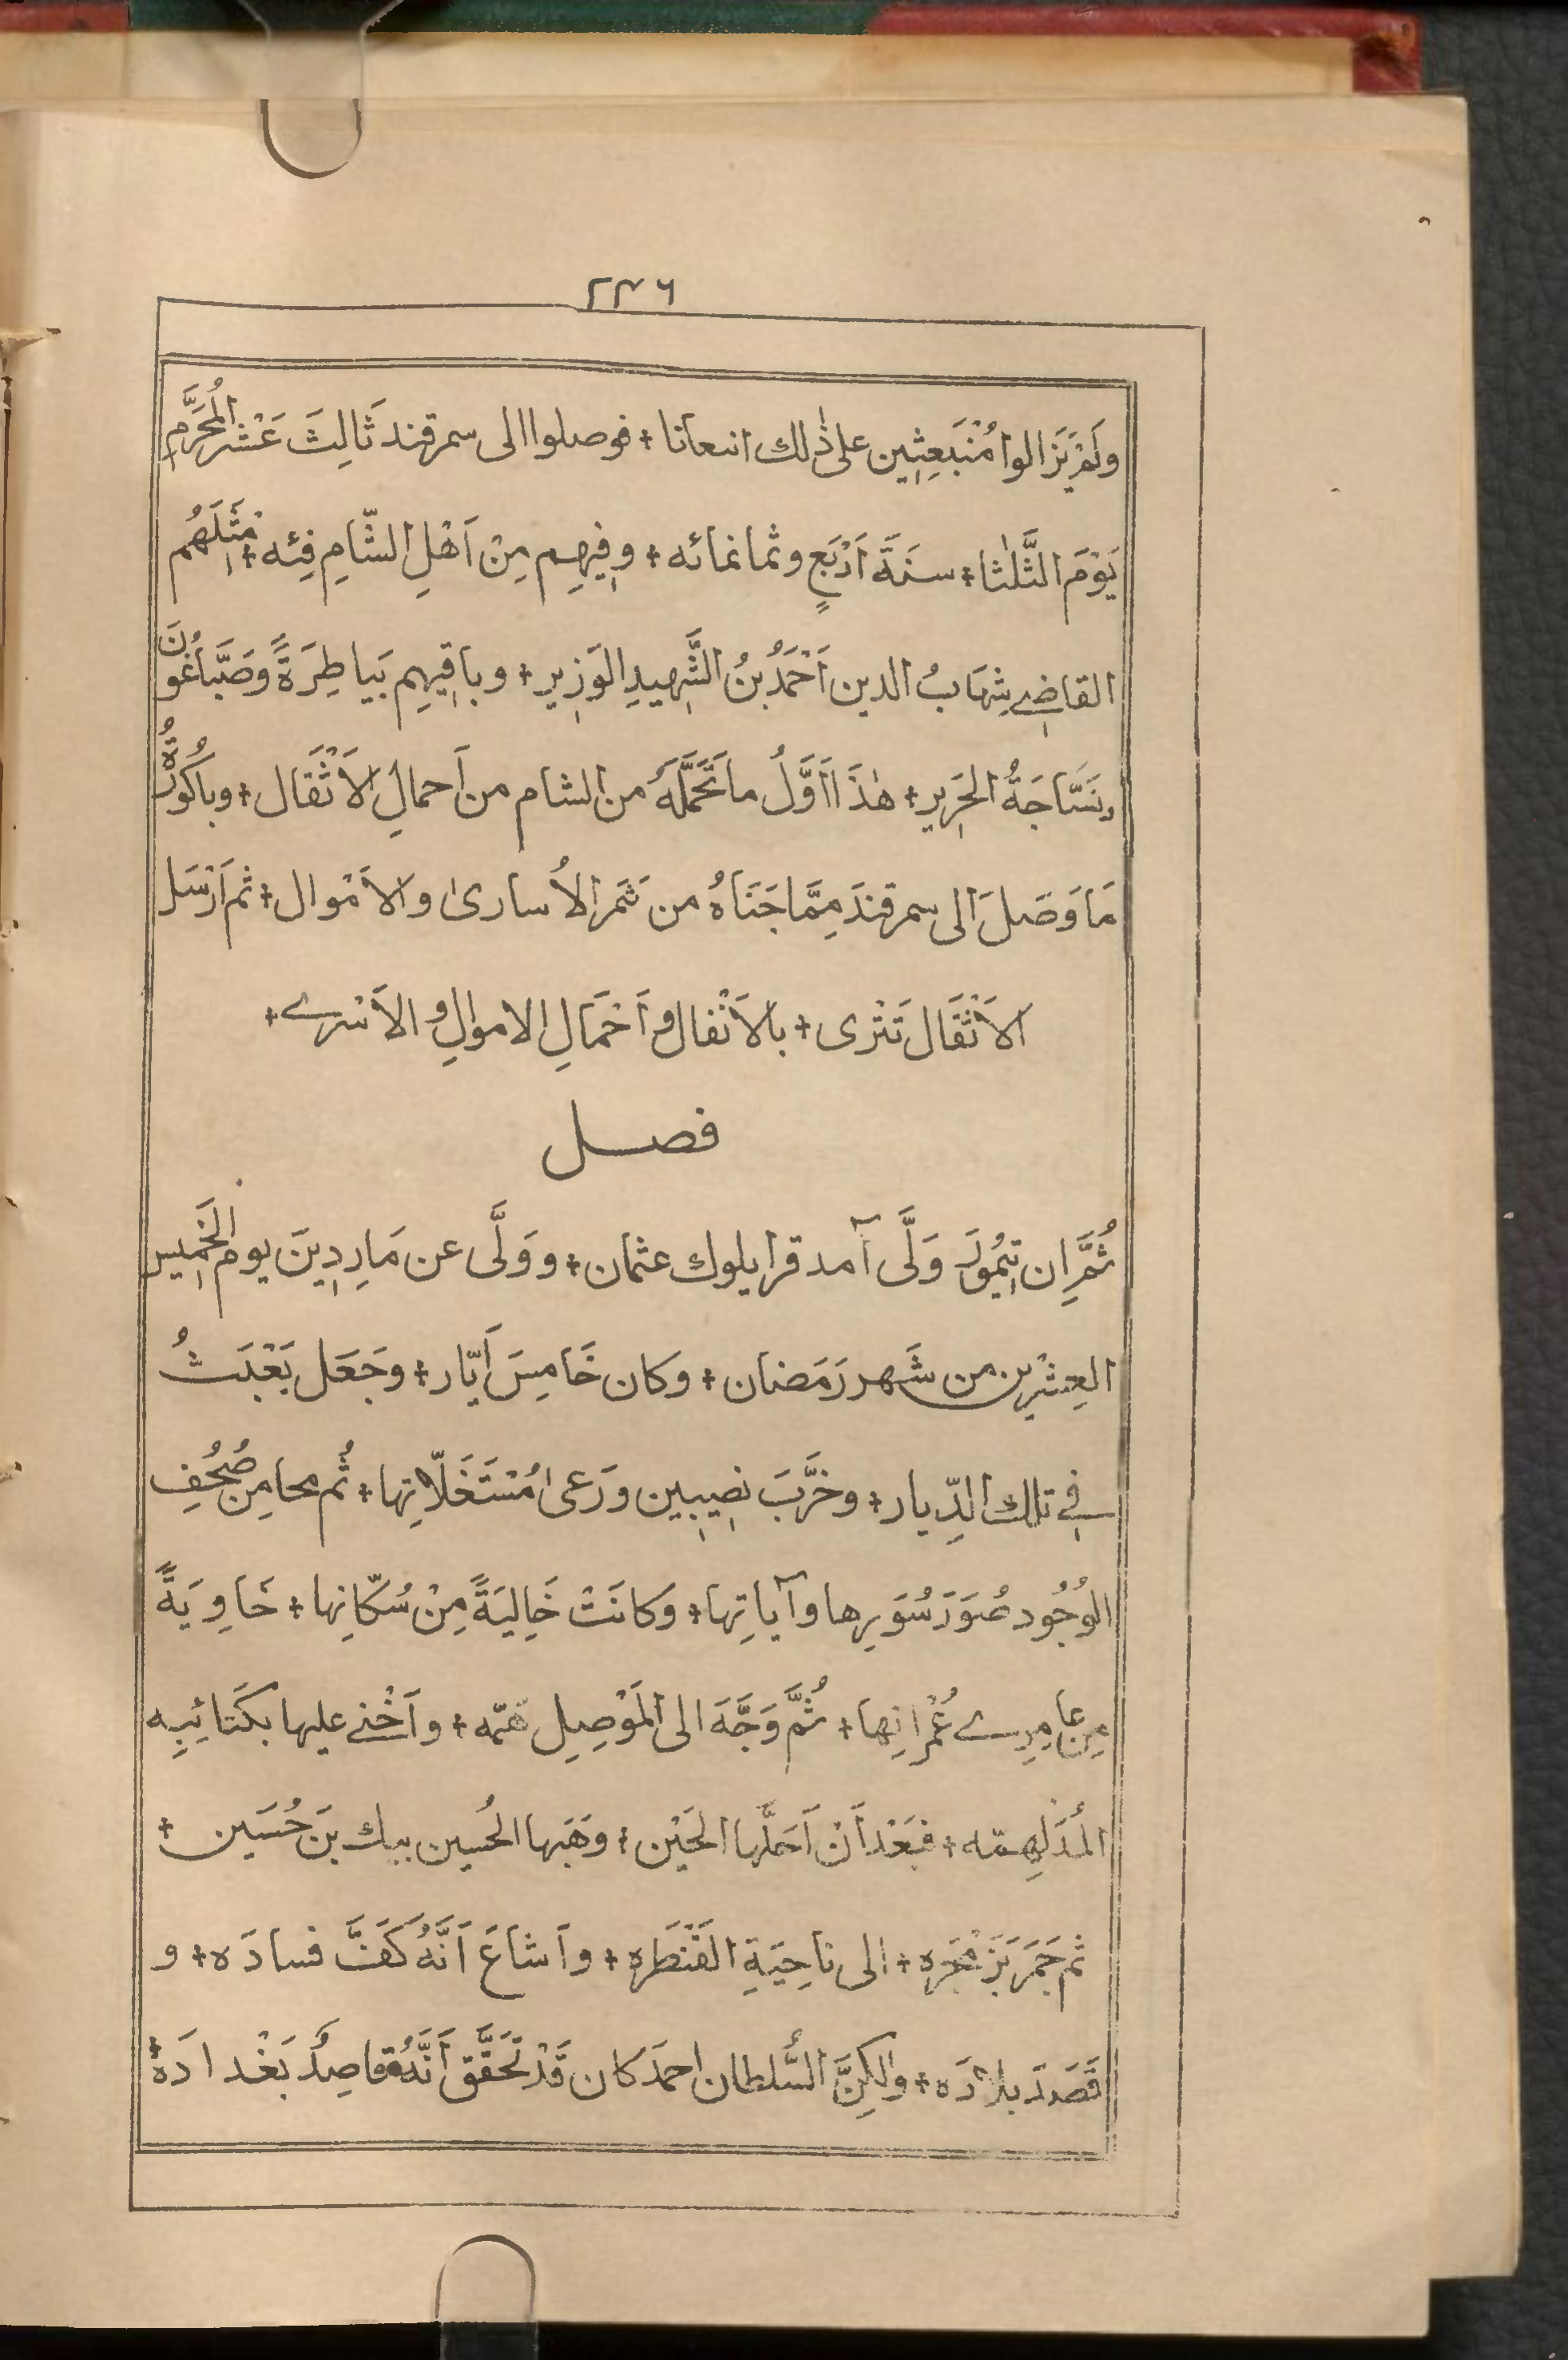 ٢٣٦
ولَمْ يَزالوا مُنْبَعِثِين على ذٰلك انبعاثا + فوصلوا الى سمرقند ثَالِثَ عَشر المُحَرَّمِ
يَوْمَ الثَّلٰثا + سنَةَ اَرْبَعٍ وثمانمائه + وفِيهِم مِنْ اَهْلِ الشّامِ فِئه + مَثَلَهُم
القاضِي شِهَابُ الدين اَحْمَدُ بنُ الشَّهِيدِ الوَزِيرِ + وباقِيهِم بَياطِرَةً وصَبَّاغُونَ
ونَسَّاجَةُ الحَرِيرِ + هٰذَا اَوَّلُ ما تَحَمَّلَهُ من الشام من اَحمالِ الاَثْقَال + وباكُورَةُ
مَا وَصَلَ الى سمرقندَ مِمَّا جَنَاهُ من ثَمَر الاُسارىٰ والاَمْوال + ثم اَرْسَل
الاَثْقَال تَتْرى + بالاَثْقال واَحْمَالِ الاموالِ والاَسْرى +
فصل
ثُمَّ اِن تِيمُورَ وَلَّى آمد قرايلوك عثمان + ووَلَّى عن مَارِدِينَ يوم الخَمِيس
العِشْرِين من شَهر رَمَضان + وكان خَامِسَ اَيّار + وجَعَل يَعْبَثُ
في تلك الدِّيار + وخرَّبَ نصِيبِين ورَعى مُسْتَغَلّاتِها + ثُم محا مِن صُحُفِ
الوُجُود صُوَرَ سُوَرِها وآياتِها + وَكانَتْ خَالِيَةً مِنْ سُكّانِها + خَاوِيَةً
مِن عامِرِي عُمْرانِها + ثُمَّ وَجَّهَ الى المَوْصِلِ هَمّه + واَخْنى عليها بكَتائِبِه
المُدلَهِمّه + فبَعْد اَنْ اَحَلَّها الحَيْن + وهَبَها لحُسين بيك بنَ حُسَين +
ثم جَمَرَ بَزَمْجَرِه + الى ناحِيَةِ القَنْطَرِه + واَشاعَ اَنَّهُ كَفَّ فسادَه + و
قَصَدَ بلادَه + ولٰكِنَّ السُّلطان احمدَ كان قَدْ تَحَقَّق اَنَّهُ قاصِدُ بَغْدادَهْ +